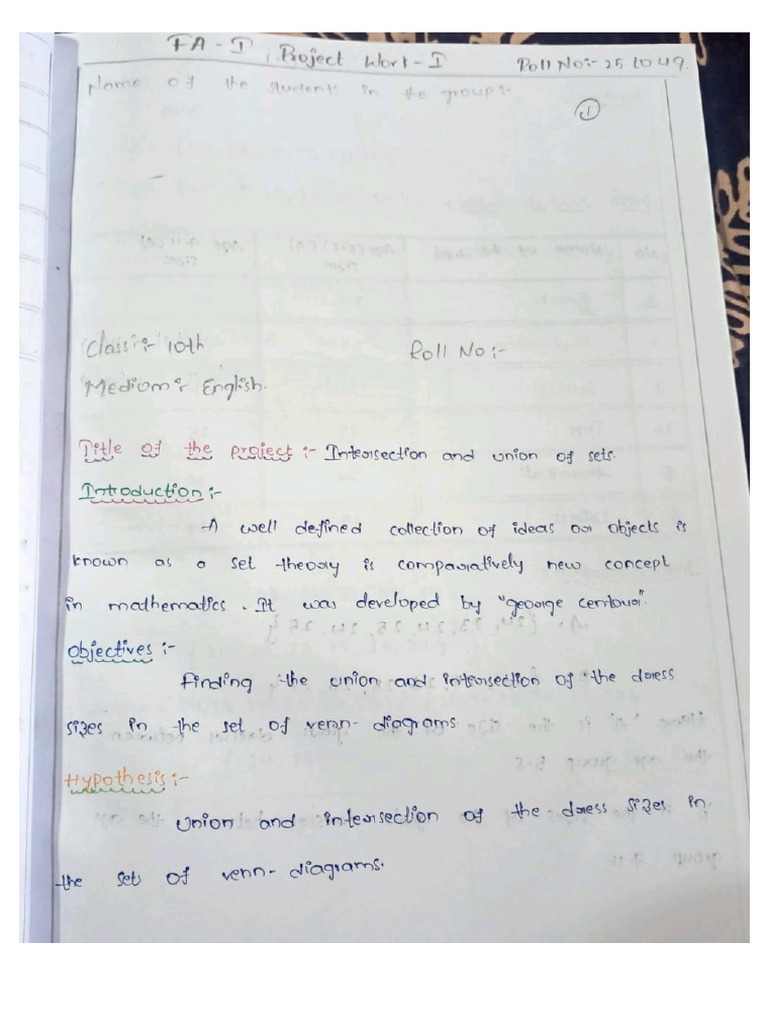 FA - I Project Work - I Roll No:- 25 to 49.
Name of the students in the group:-
1
Class :- 10th Roll No :-
Medium :- English.
Title of the project :- Intersection and union of sets.
Introduction :-
A well defined collection of ideas or objects is
known as a set theory is comparatively new concept
in mathematics. It was developed by "george
objectives :-
Finding the union and intersection of the dress
sizes in the set of venn-diagrams.
Hypothesis :-
Union and intersection of the dress sizes in
the sets of venn-diagrams.